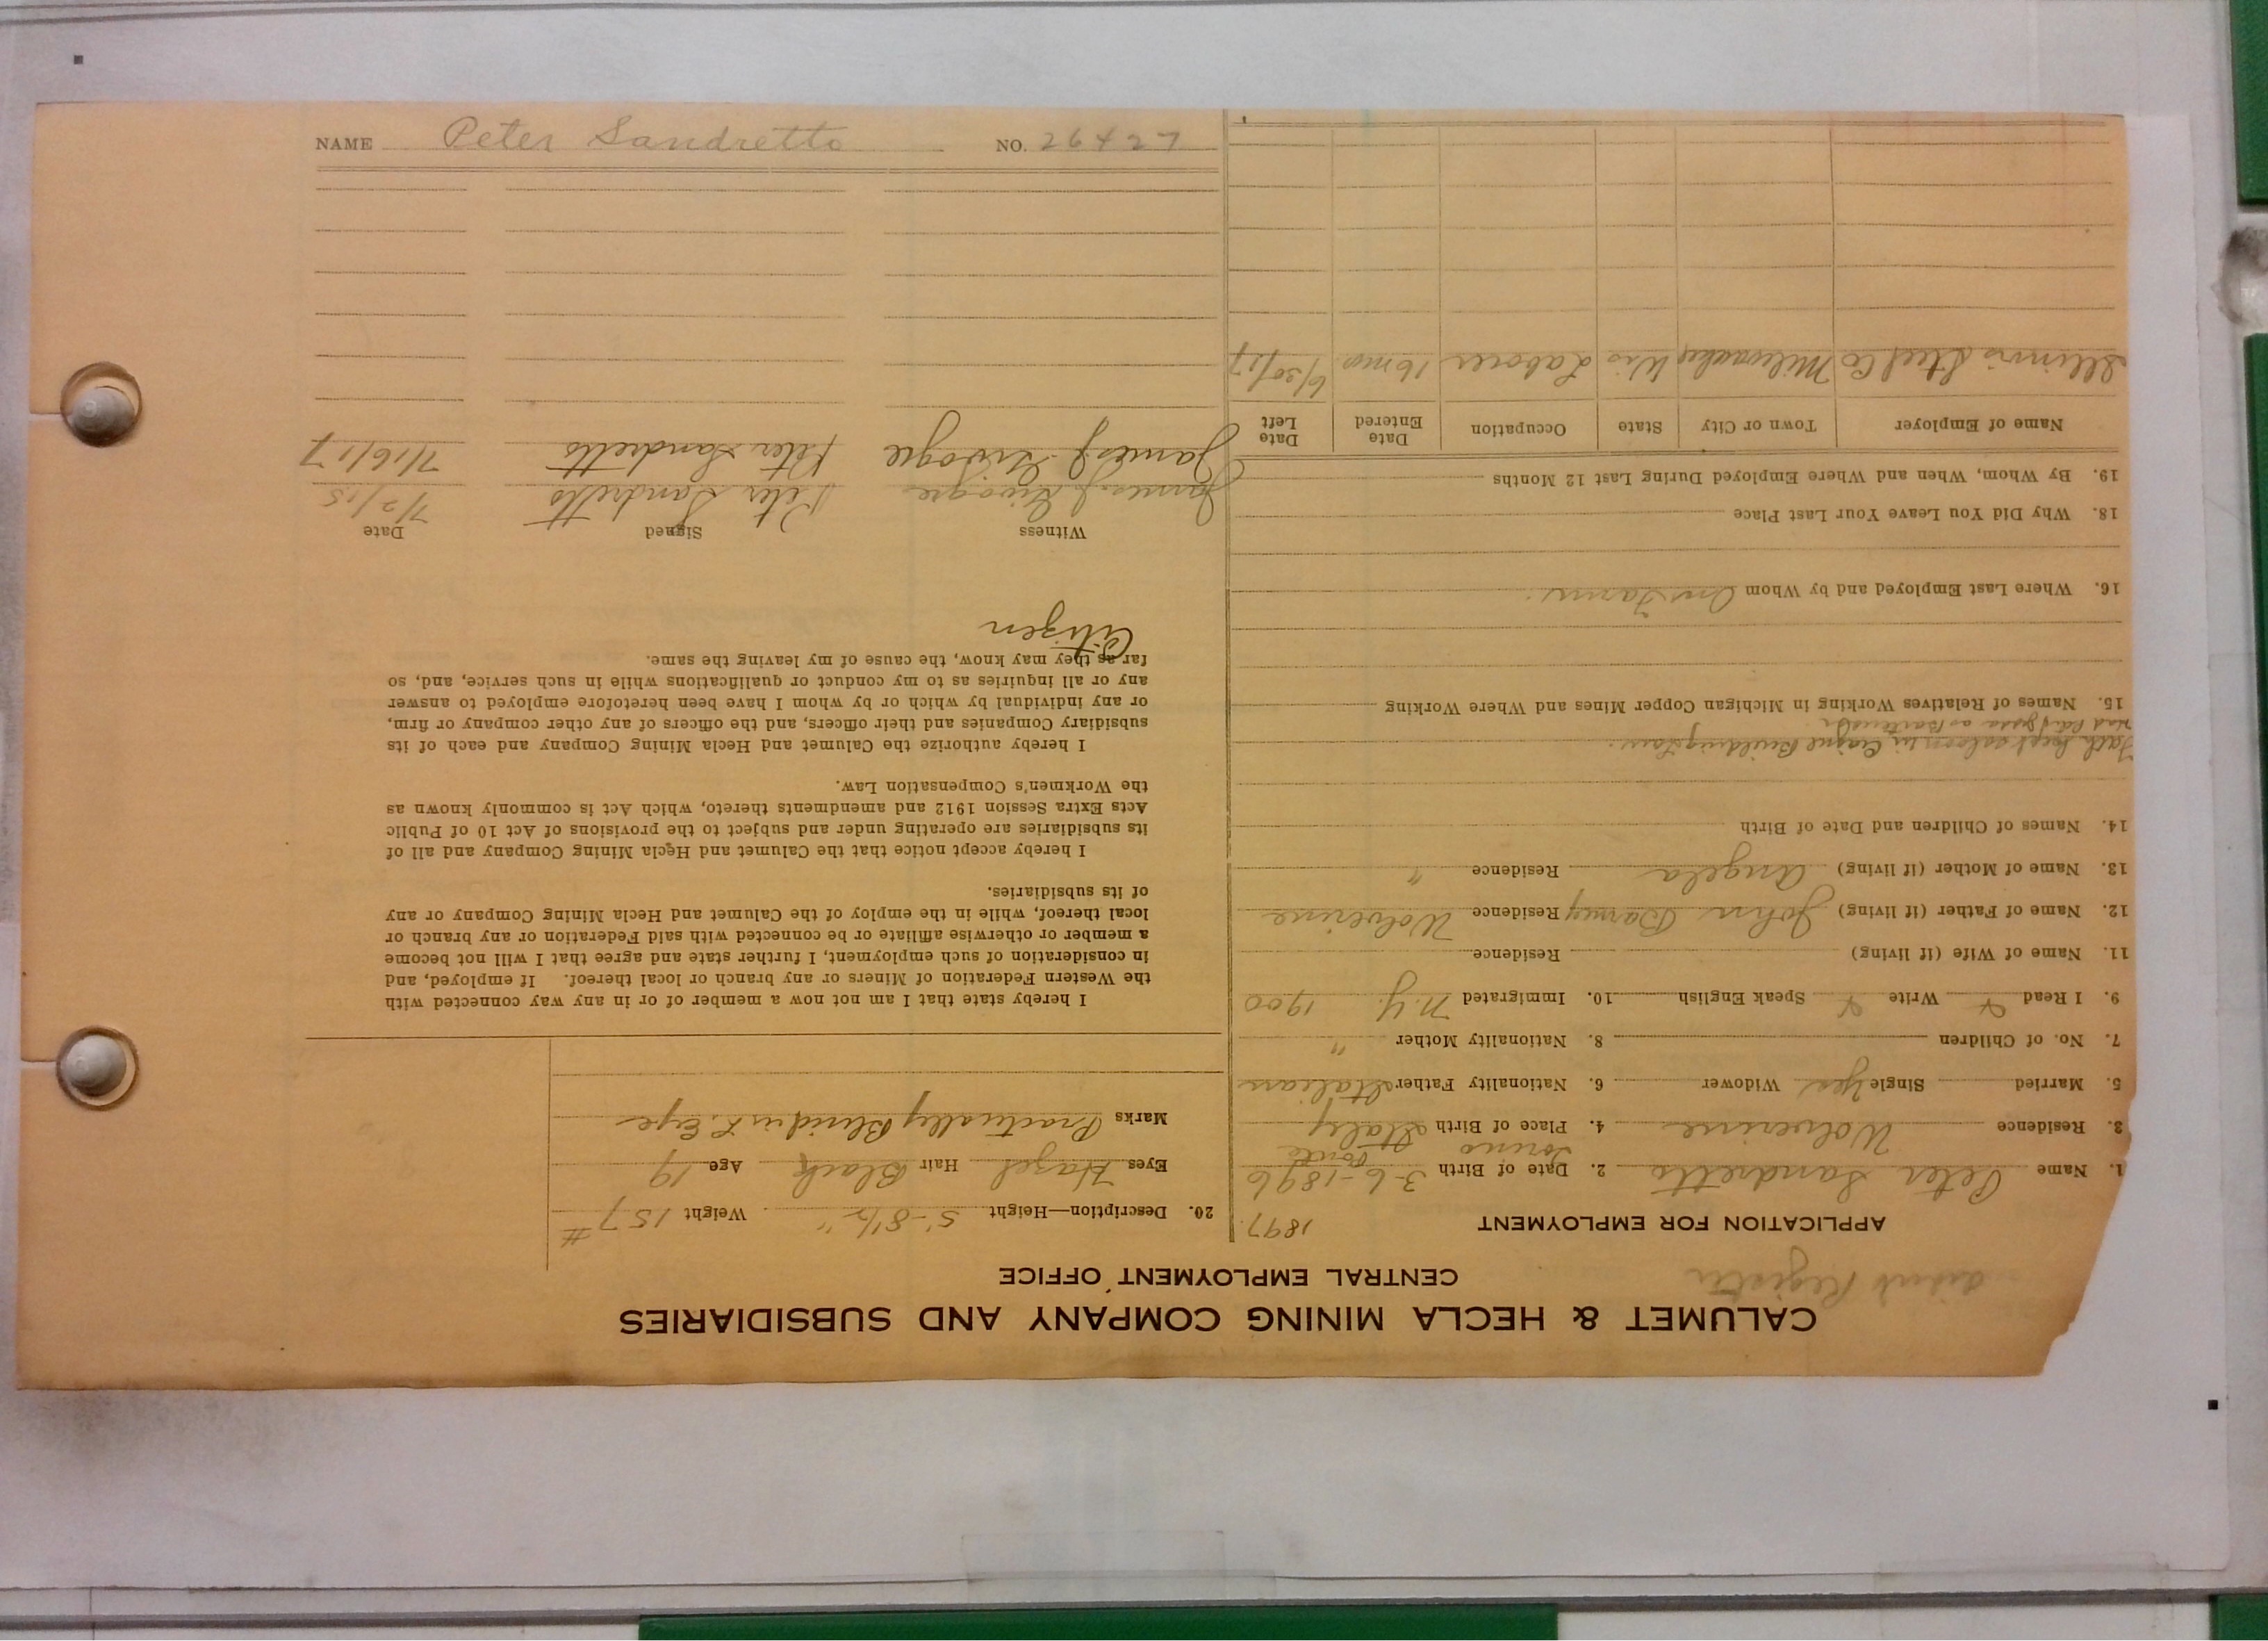 NAME Peter Sandretto NO. 26427
CALUMET & HECLA MINING COMPANY AND SUBSIDIARIES
CENTRAL EMPLOYMENT OFFICE
Register
APPLICATION FOR EMPLOYMENT
1897
1. Name Peter Sandretto 2. Date of Birth 3-6-1896
Torino
3. Residence Wolverine 4. Place of Birth Italy
5. Married Single Yes Widower 6. Nationality Father Italian
7. No. of Children 8. Nationality Mother "
9. I Read Write Speak English 10. Immigrated N.Y. 1900
11. Name of Wife (if living) Residence
12. Name of Father (if living) John Residence Wolverine
13. Name of Mother (if living) Angela Residence "
14. Names of Children and Date of Birth
Building
as Bartender
15. Names of Relatives Working in Michigan Copper Mines and Where Working
16. Where Last Employed and by Whom On Farm.
18. Why Did You Leave Your Last Place
19. By Whom, When and Where Employed During Last 12 Months
Name of Employer Town or City State Occupation Date Entered Date Left
Illinois Steel Co Milwaukee Wis Laborer 16 mo 6/30/17
20. Description—Height 5'-8½" Weight 157#
Eyes Hazel Hair Black Age 19
Marks Practically Blind in L. Eye
I hereby state that I am not now a member of or in any way connected with
the Western Federation of Miners or any branch or local thereof. If employed, and
in consideration of such employment, I further state and agree that I will not become
a member or otherwise affiliate or be connected with said Federation or any branch or
local thereof, while in the employ of the Calumet and Hecla Mining Company or any
of its subsidiaries.
I hereby accept notice that the Calumet and Hecla Mining Company and all of
its subsidiaries are operating under and subject to the provisions of Act 10 of Public
Acts Extra Session 1912 and amendments thereto, which Act is commonly known as
the Workmen's Compensation Law.
I hereby authorize the Calumet and Hecla Mining Company and each of its
subsidiary Companies and their officers, and the officers of any other company or firm,
or any individual by which or by whom I have been heretofore employed to answer
any or all inquiries as to my conduct or qualifications while in such service, and, so
far as they may know, the cause of my leaving the same.
Citizen
Witness Signed Date
James J. Peter Sandretto 7/2/15
James J. Peter Sandretto 7/16/17